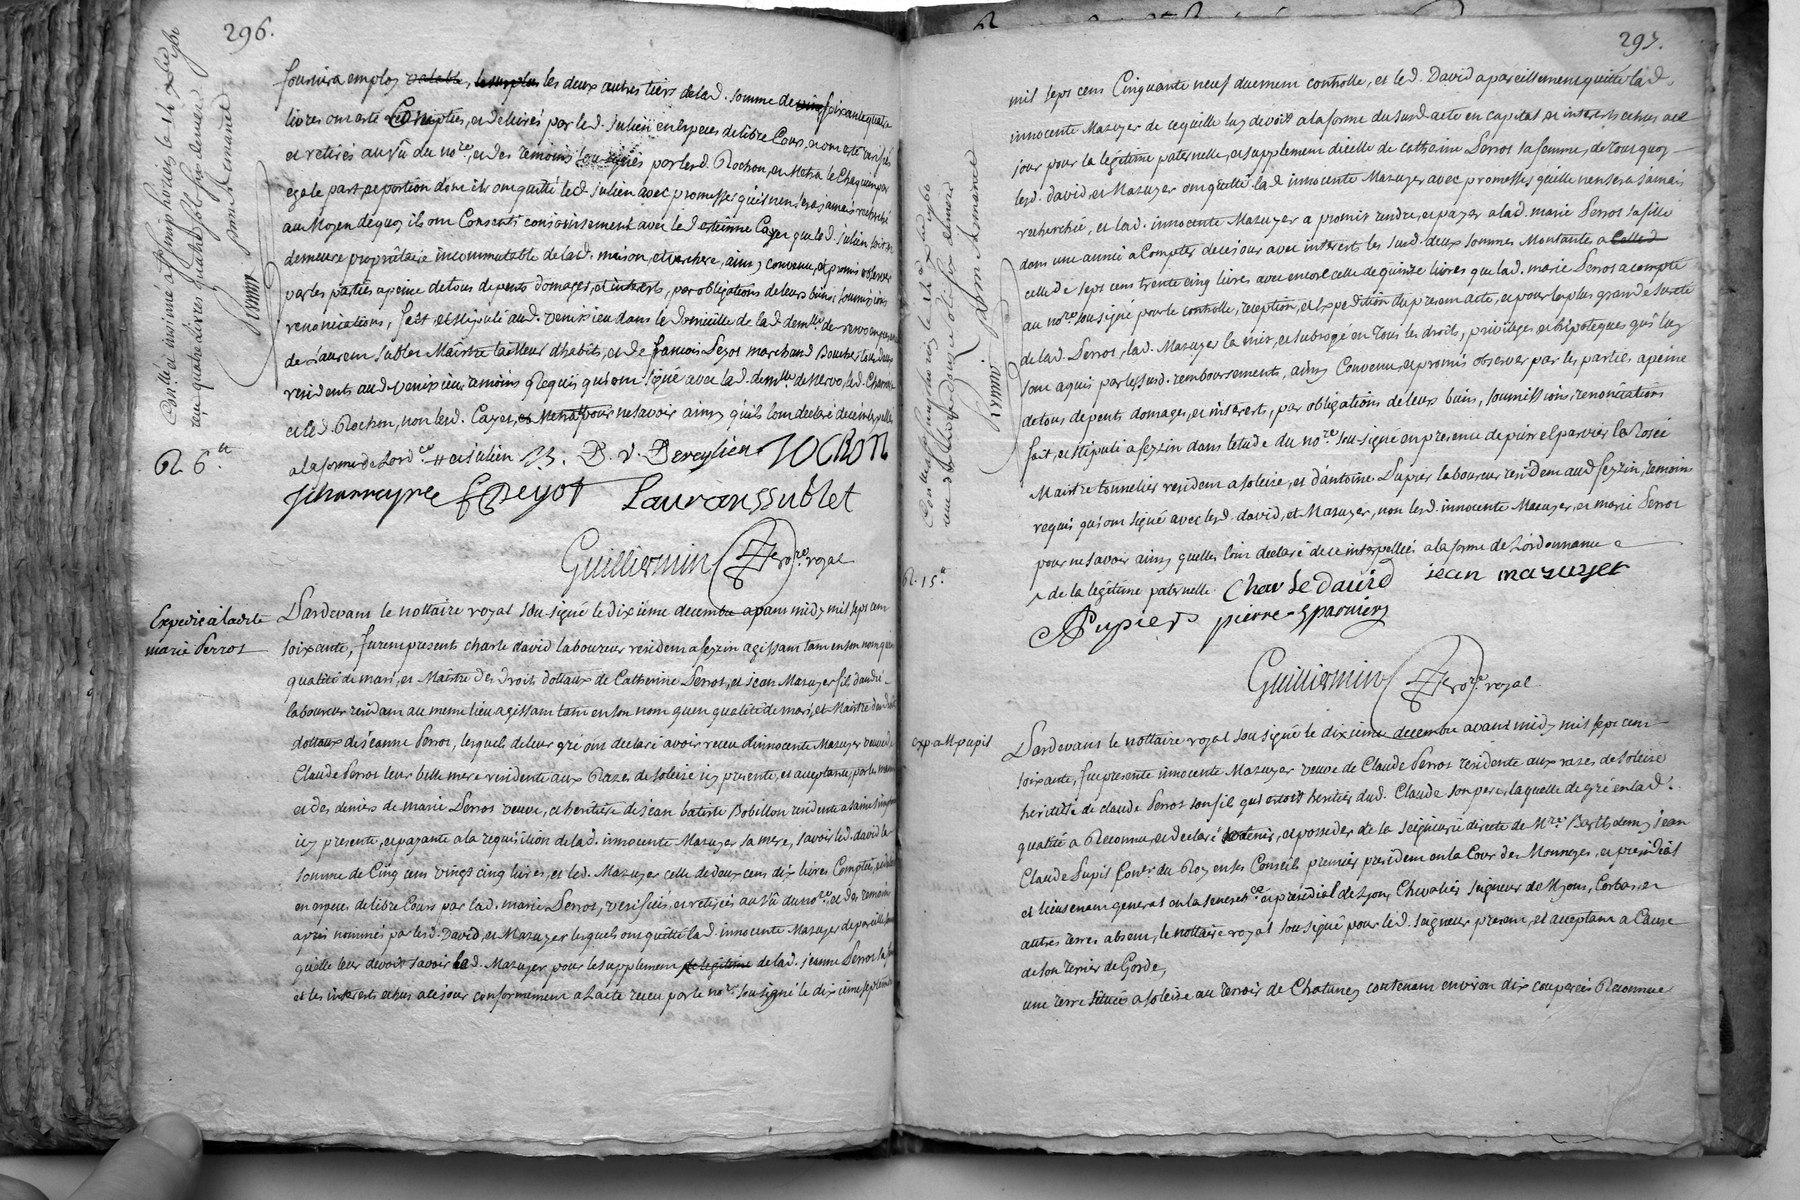 296.
fournira employ valable, le surplus les deux autres tiers de lad. somme de vingt soixante quatre
livres ont eté comptées, et délivrés par led. julien en especes de libre cours, nombrés verifiés
et retirés au vû du nore, et des temoins sousignés par lesd. Rochon, et Metra le chaqun par
egale part et portion dont ils ont quitté led. julien avec promesses qu'il n'en sera jamais recherché
au moyen de quoy ils ont consenti conjointement avec led. estienne Cayer que led. julien soit et
demeure proprietaire incommutable de lad. maison, et verchere, ainsy convenu, et promis observer
par les parties a peine de tous depents domages, et interets, par obligations de leurs biens soumissions
renonciations, fait et stipulé aud. venissieu dans le domicille de lad. demlle de nervo en presence
de Laurent Sublet Maitre tailleur d'habits, et de francois Peyot marchand Boucher tous deux
residents aud. venissieu temoins Requis qui ont signé avec lad. demlle de nervo, led. Charreyre
et led. Rochon, non led. Cayer, et Metra pour ne savoir ainsy qu'ils l'ont declaré de ce interpellés
a la forme de Lordce et julien
ROCHON
jcharreyre Peyot Lauranssublet
Guilliermin nore royal
R. 6 tt
Expedié à ladite
marie Perrot
Pardevant le nottaire royal sousigné le dixieme decembre avant midy mil sept cent
soixante, furent present charle david laboureur resident a feyzin agissant tant en son nom qu'en
qualité de mari, et Maitre des droits dottaux de Catherine Perrot, et jean Mazuyer fils d'andré
laboureur residant au meme lieu agissant tant en son nom qu'en qualité de mari, et Maitre des droits
dottaux de jeanne Perrot, lesquels de leur gré ont declaré avoir receu d'innocente Mazuyer veuve de
Claude Perrot leur belle mere residente aux Razes de soleize icy presente, et acceptante, par les mains
et des deniers de marie Perrot veuve, et heritiere de jean batiste Bobillon residente a saint
icy presente, et payante a la requisition de lad. innocente Mazuyer sa mere, savoir led. david la
somme de Cinq cent vingt cinq livres, et led. Mazuyer celle de deux cent dix livres Comptées, et
en especes de libre cours par lad. marie Perrot, verifiées, et retirées au vû du nore, et des temoins
après nommés par lesd. David, et Mazuyer lesquels ont quitté lad. innocente Mazuyer de pareille somme
qu'elle leur devoit savoir aud. Mazuyer pour le supplement de legitime de lad. jeanne Perrot sa femme
et les interets echus a ce jour conformement a l'acte receu par le nore sousigné le dixieme septembre
297.
mil sept cent Cinquante neuf duement controllé, et led. David a pareillement quitté lad.
innocente Mazuyer de ce qu'elle luy devoit a la forme du susd. acte en capital et interets echus a ce
jour pour la legitime paternelle, et supplement d'icelle de catherine Perrot sa femme, de tout quoy
lesd. david, et Mazuyer ont quitté lad. innocente Mazuyer avec promesses qu'elle n'en sera jamais
recherchée, et lad. innocente Mazuyer a promis rendre, et payer a lad. marie Perrot sa fille
dans une année a compter de ce jour avec interest les susd. deux sommes Montantes a Celle d
celle de sept cent trente cinq livres avec encore celle de quinze livres que lad. marie Perrot a compté
au nore sousigné pour le controlle, reception, et expedition du present acte, et pour la plus grande sureté
de lad. Perrot, lad. Mazuyer la mis, et subrogé en tous les droits, privileges et hipoteques qu'il luy
sont aquis par les susd. remboursements, ainsy convenu, et promis observer par les parties a peine
de tous depents domages, et interets, par obligations de leurs biens, soumissions, renonciations
fait, et stipulé a feyzin dans l'etude du nore sousigné en presence de pierre esparvier la Rosée
Maitre tonnelier resident a soleize, et d'antoine Pupier laboureur resident aud. feyzin, temoins
requis qui ont signé avec lesd. david, et Mazuyer, non lesd. innocente Mazuyer, et marie Perrot
pour ne savoir ainsy qu'elles l'ont declaré de ce interpellées a la forme de l'ordonnance
de la legitime paternelle Charle david jean mazuyer
APupier pierre esparvier
Guilliermin nore royal
R. 15 tt
exp a M. pupil
Pardevant le nottaire royal sousigné le dixieme decembre avant midy mil sept cent
soixante, fut presente innocente Mazuyer veuve de Claude Perrot residente aux razes de soleize
heritiere de claude Perrot son fil qui estoit heritier dud. Claude son pere, laquelle de gré en lad.
qualité a Reconnu, et declaré tenir, et posseder de la seigneurie directe de Mre Barthelemy jean
Claude Pupil Coner du Roy en ses Conseils premier president en la Cour des Monnoyes, et presidial
et lieutenant general en la senechce et presidial de Lyon, Chevalier seigneur de Myons, Corbas, et
autres terres absent, le nottaire royal sousigné pour led. seigneur present, et acceptant a Cause
de son terrier de Gorde,
une terre située a soleize au terroir de Chatanay contenant environ dix couperées Reconnue